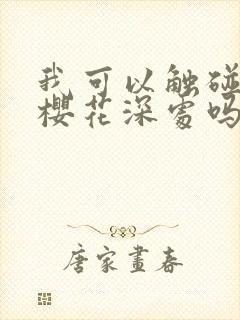 我可以触碰
樱花深处吗
唐家画春